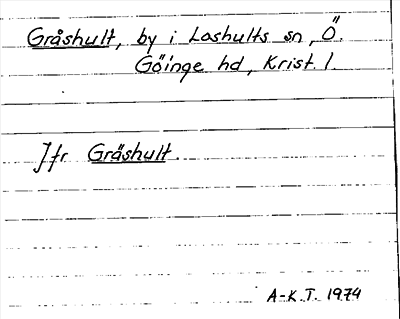 Gråshult, by i Loshults sn, Ö.
Göinge hd, Krist. l.
Jfr Gräshult.
A-K.T. 1974